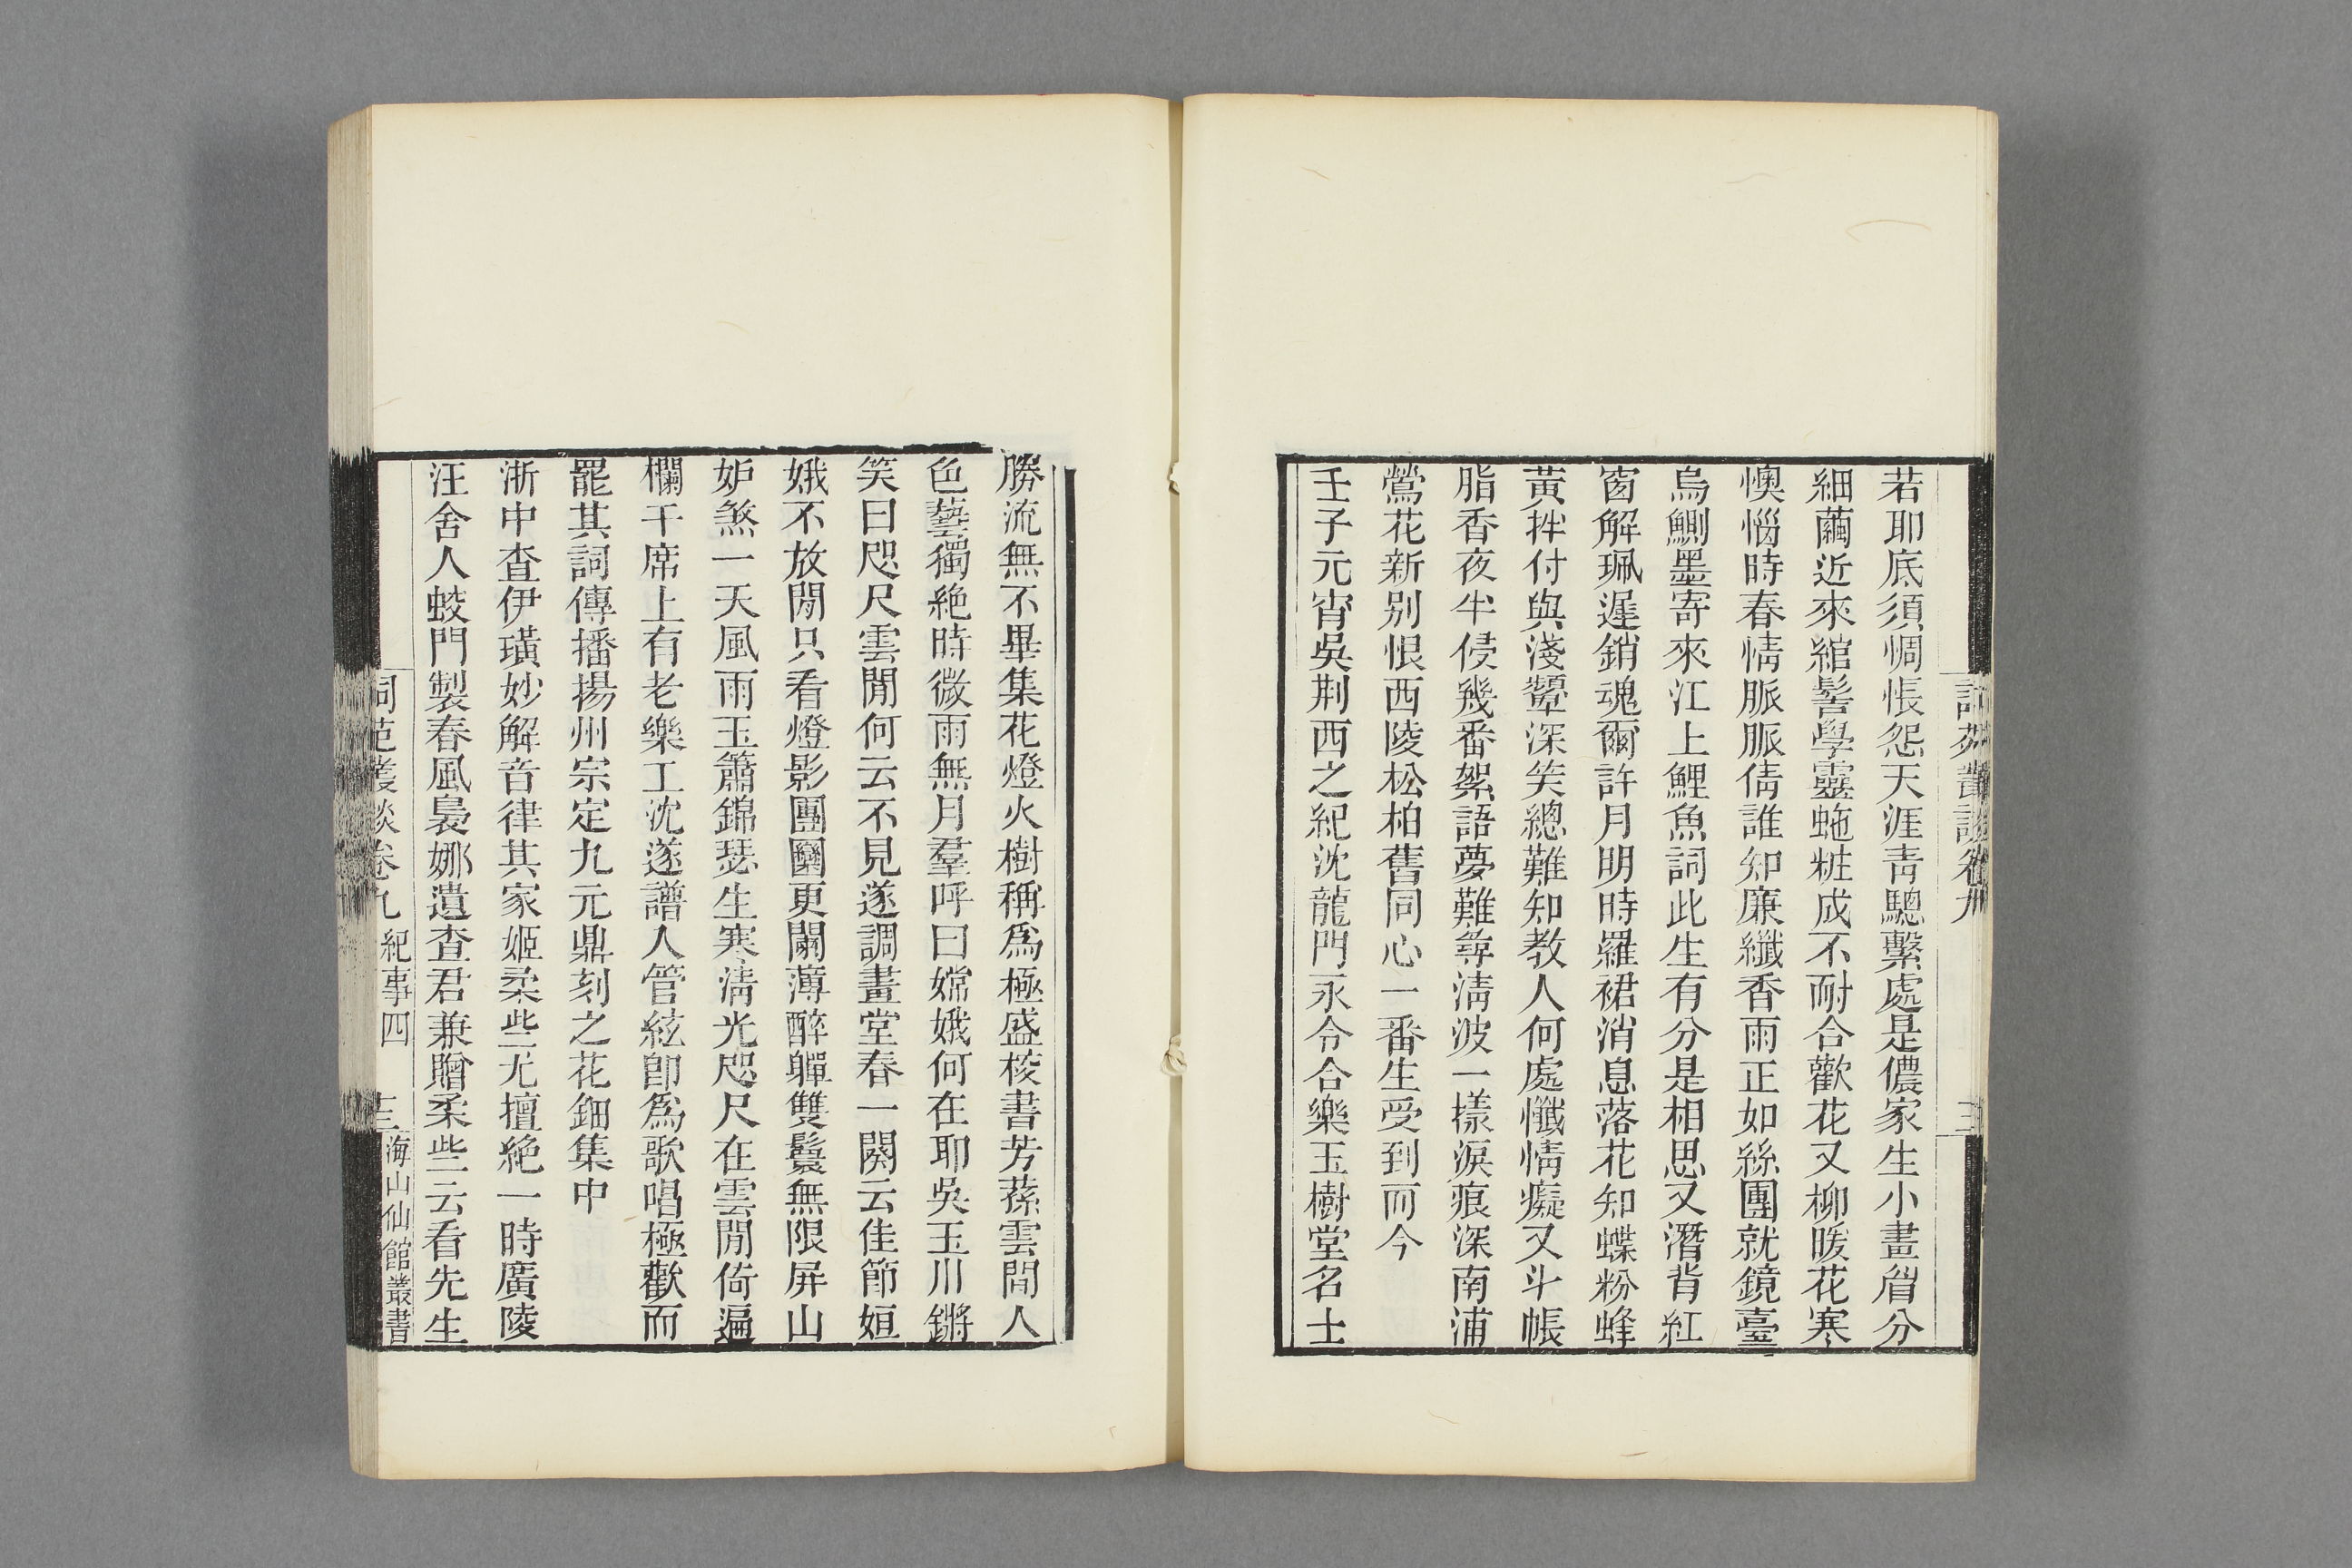 詞苑叢談卷九
三
若耶底須惆悵怨天涯靑驄繫處是儂家生小畫眉分
細繭近來綰髻學靈虵粧成不耐合歡花又柳暖花寒
懊惱時春情脈脈倩誰知廉纖香雨正如絲團就鏡臺
烏鰂墨寄來江上鯉魚詞此生有分是相思又潛背紅
窗解珮遲銷魂爾許月明時羅裙消息落花知蝶粉蜂
黃拌付與淺顰深笑總難知教人何處懺情癡又斗帳
脂香夜半侵幾番絮語夢難尋淸波一樣淚痕深南浦
鶯花新别恨西陵松柏舊同心一番生受到而今
壬子元宵吳荆西之紀沈龍門永令合樂玉樹堂名士
勝流無不畢集花燈火樹稱爲極盛校書芳蓀雲閒人
色藝獨絶時微雨無月羣呼曰嫦娥何在耶吳玉川鏘
笑曰咫尺雲閒何云不見遂調畫堂春一闋云佳節姮
娥不放閒只看燈影團圞更闌薄醉軃雙鬟無限屏山
妒煞一天風雨玉簫錦瑟生寒淸光咫尺在雲閒倚遍
欄干席上有老樂工沈遂譜人管絃卽爲歌唱極歡而
罷其詞傳播揚州宗定九元鼎刻之花鈿集中
浙中查伊璜妙解音律其家姬柔些尤擅絶一時廣陵
汪舍人蛟門製春風裊娜遺查君兼贈柔些云看先生
詞苑叢談卷九 紀事四 三 海山仙館叢書